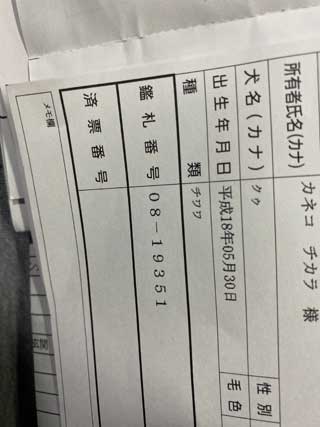 所有者氏名(カナ) カネコ チカラ 様
犬名(カナ) クゥ 性別
出生年月日 平成18年05月30日 毛色
種類 チワワ
鑑札番号 08-19351
済票番号
メモ欄